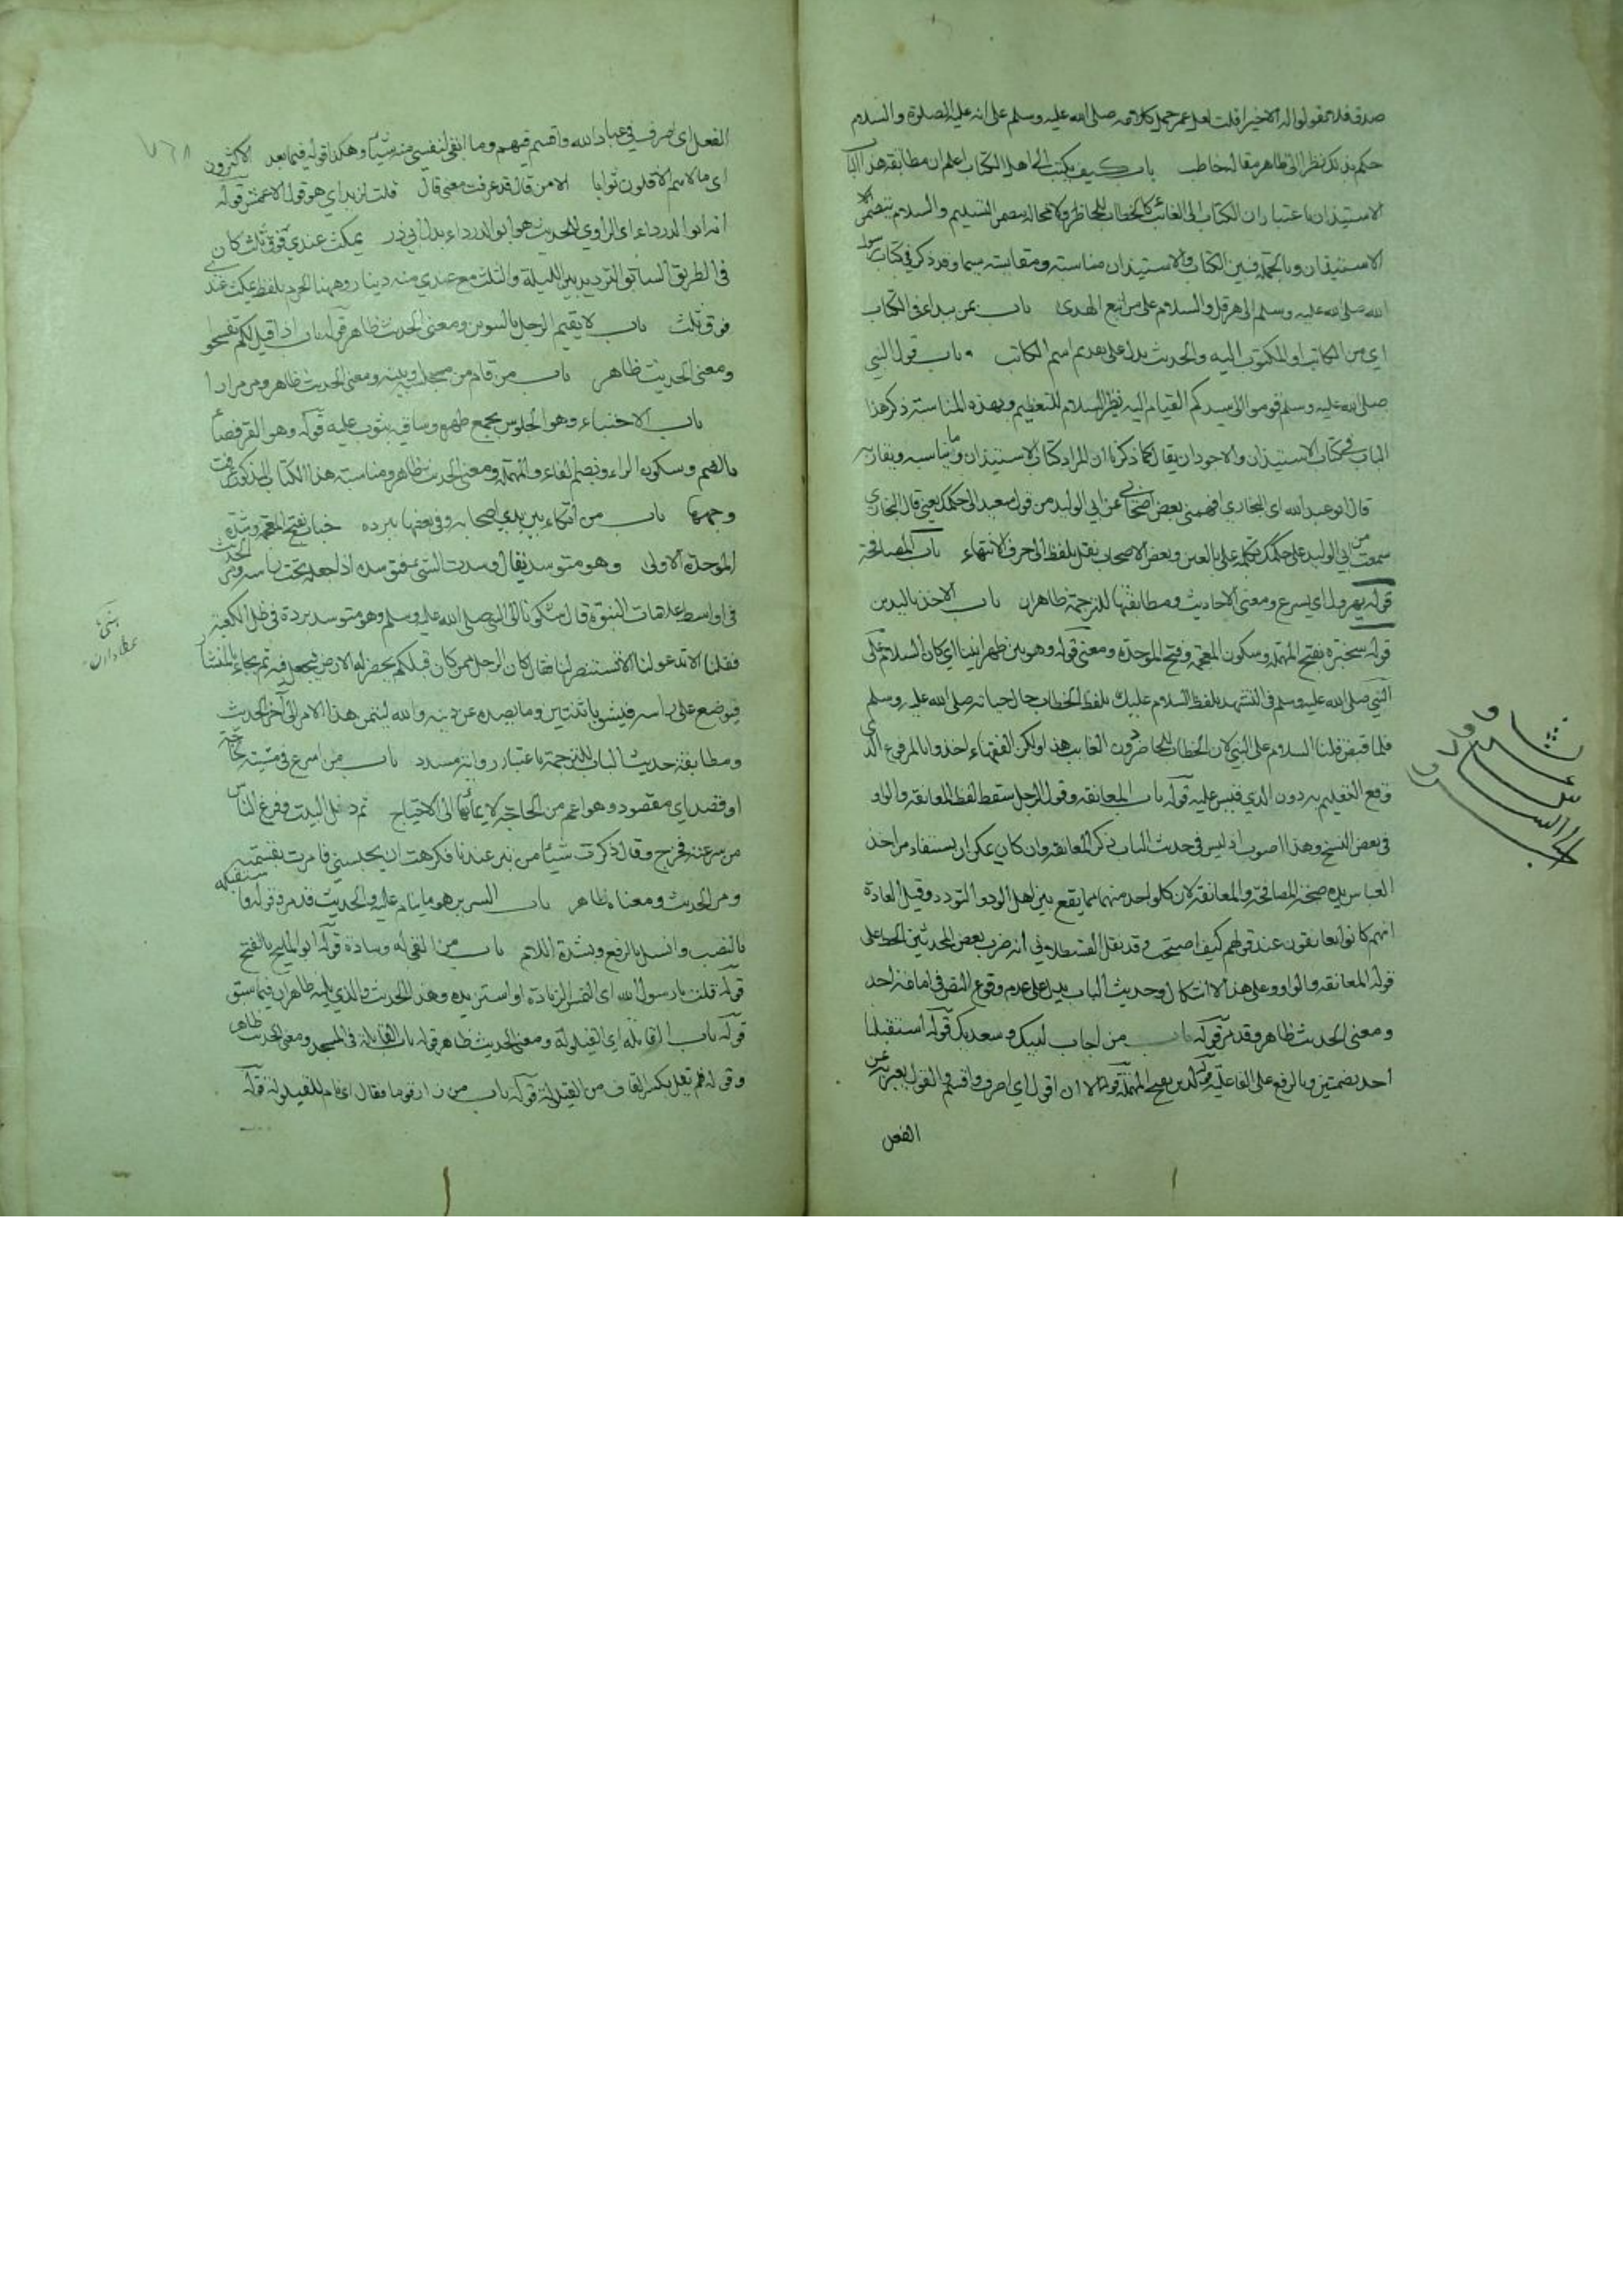 صدق فلا تقولوا له الا خيرا قلت لعل عمر حمل كلامه صلى الله عليه وسلم على انه عليه الصلوة والسلام
حكم بذلك نظرا الى ظاهر مقال حاطب باب كيف يكتب الى اهل الكتاب اعلم ان مطابقة هذا الباب
الاستيذان باعتبار ان الكتاب الى الغائب كالخطاب للحاضر ولا محالة التسليم والسلام يتضمن
الاستيذان وبالجملة فبين الكتاب والاستيذان مناسبة ومقابسة وقد ذكر في كتاب رسول
الله صلى الله عليه وسلم الى هرقل والسلام على من اتبع الهدى باب بمن يبداء في الكتاب
اي من الكاتب او المكتوب اليه والحديث يدل على تقديم اسم الكاتب وباب قول النبي
صلى الله عليه وسلم قوموا الى سيدكم القيام اليه نظير السلام للتعظيم وبهذه المناسبة ذكر هذا
الباب في كتاب الاستيذان والاجود ان يقال كما ذكرنا ان المراد كتاب الاستيذان وما يناسبه ويقاربه
قال ابو عبد الله اي البخاري افهمني بعض اصحابي عن ابي الوليد من قول سعيد الى حكمك يعني قال البخاري
سمعت من ابي الوليد على حكمك بكلمة على بالعين وبعض الاصحاب نقل بلفظ الى حرف الانتهاء باب المصافحة
قوله يهرول اي يسرع ومعنى الاحاديث ومطابقتها للترجمة ظاهران باب الاخذ باليدين
قوله سخبرة بفتح المهملة وسكون المعجمة وفتح الموحدة ومعنى قوله وهو بين ظهرانينا اي كان السلام على
النبي صلى الله عليه وسلم في التشهد بلفظ السلام عليك بلفظ الخطاب حال حياته صلى الله عليه وسلم
فلما قبض قلنا السلام على النبي لان الخطاب للحاضر دون الغائب هذا ولكن الفقهاء اخذوا بالمرفوع الذي
وقع التعليم به دون الذي قيس عليه قوله باب المعانقة وقول الرجل سقط لفظ المعانقة والواو
في بعض النسخ وهذا اصوب اذ ليس في حديث الباب ذكر المعانقة وان كان يمكن ان يستفاد من اخذ
العباس يده المصافحة والمعانقة لان كل واحد منهما مما يقع بين اهل الود والتودد وقيل العادة
انهم كانوا يعانقون عند قولهم كيف اصبحت وقد نقل القسطلاني انه ضرب بعض المحدثين الخط على
قوله المعانقة والواو وعلى هذا لا اشكال وحديث الباب يدل على عدم وقوع النص في امامة احد
ومعنى الحديث ظاهر وقد مر قوله باب من اجاب لبيك وسعديك قوله استقبلنا
احد بضمتين وبالرفع على الفاعلية قوله الا ان اقول اي اصرف واقسم والقول يعبر به عن
الفعل
الفعل اي اصرف في عباد الله واقسم فيهم وما ابقي لنفسي منه شيئا وهكذا قوله فيما بعد الاكثرون
اي مالا هم الاقلون ثوابا الا من قال قد عرفت معنى قال قلت لزيد اي هو قول الاعمش قوله
انه ابو الدرداء اي الراوي للحديث هو ابو الدرداء بدل ابي ذر يمكث عندي فوق ثلث كان
في الطريق السابق الترديد بين الليلة والثلث مع عندي منه دينار وههنا الجزم بلفظ يمكث عندي
فوق ثلث باب لا يقيم الرجل بالسوين ومعنى الحديث ظاهر قوله باب اذا قيل لكم تفسحوا
ومعنى الحديث ظاهر باب من قام من مجلسه او بيته ومعنى الحديث ظاهر ومر مرارا
باب الاحتباء وهو الجلوس بجمع ظهره وساقيه بثوب عليه قوله وهو القرفصاء
بالضم وسكون الراء وبضم الفاء والمهملة ومعنى الحديث ظاهر ومناسبة هذا الكتاب
وجهها باب من اتكاء بين يدي اصحابه وفي بعضها ببرده خباب بفتح المعجمة وشدة
الموحدة الاولى وهو متوسد يقال وسدت الشي فتوسده اذا جعله تحت راسه ومر الحديث
في اواسط علامات النبوة قال شكونا الى النبي صلى الله عليه وسلم وهو متوسد بردة في ظل الكعبة
فقلنا الا تدعو لنا الا تستنصر لنا فقال كان الرجل ممن كان قبلكم يحفر له الارض فيجعل فيه ثم يجاء بالمنشار
فيوضع على راسه فيشق باثنتين وما يصده عن دينه والله ليتمن هذا الامر الى آخر الحديث
ومطابقة حديث الباب للترجمة باعتبار رواية مسدد باب من اسرع في مشيته لحاجة
او قصد اي مقصود وهو اعم من الحاجة لايمائها الى الاحتياج ثم دخل البيت وفزع الناس
من سرعته فخرج وقال ذكرت شيئا من تبر عندنا فكرهت ان يحبسني فامرت بقسمته
ومر الحديث ومعناه ظاهر باب السرير هو ما ينام عليه والحديث قد مر وقوله فاستقبله
بالنصب وانسل بالرفع وبشدة اللام باب من القي له وسادة قوله ابو المليح بالفتح
قوله قلت يا رسول الله اي التمس الزيادة او استزيده وهذا الحديث والذي يليه ظاهران فيما سبق
قوله باب القايلة اي القيلولة ومعنى الحديث ظاهر قوله باب القايلة في المسجد ومعنى الحديث ظاهر
وقوله فلم يقل بكسر القاف من القيلولة قوله باب من زار قوما فقال اي نام للقيلولة قوله